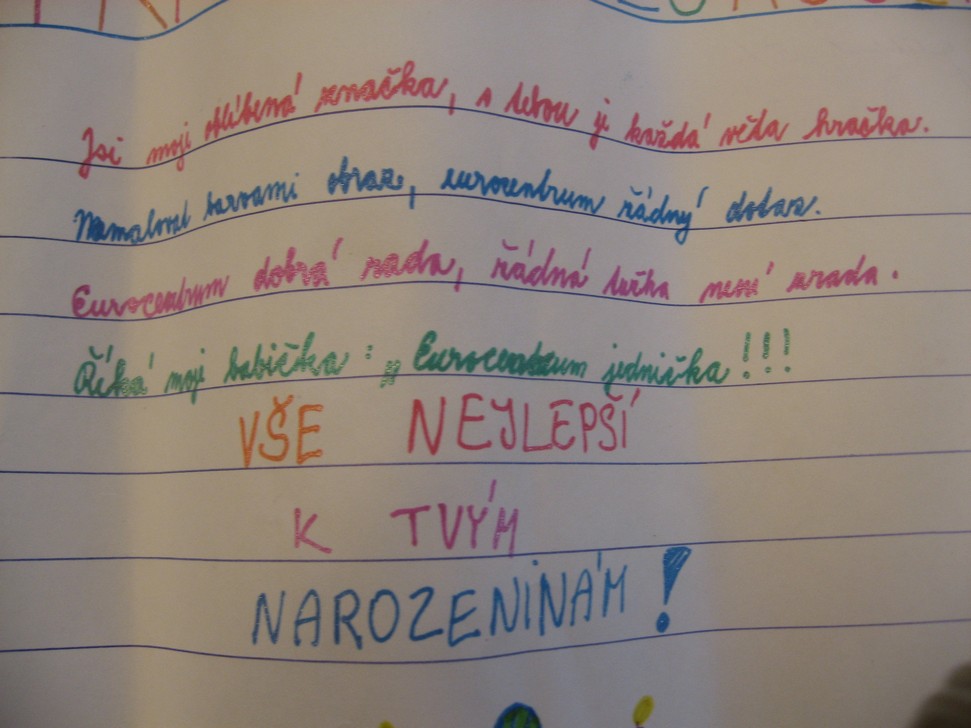 Jsi moji oblíbená značka, s tebou je každá věta hračka.
Namaloval barvami obraz, eurocentrum řádný dotaz.
Eurocentrum dobrá rada, řádná tužka není zrada.
Říká moji babička: „Eurocentrum jednička!!!
VŠE NEJLEPŠÍ
K TVÝM
NAROZENINÁM!